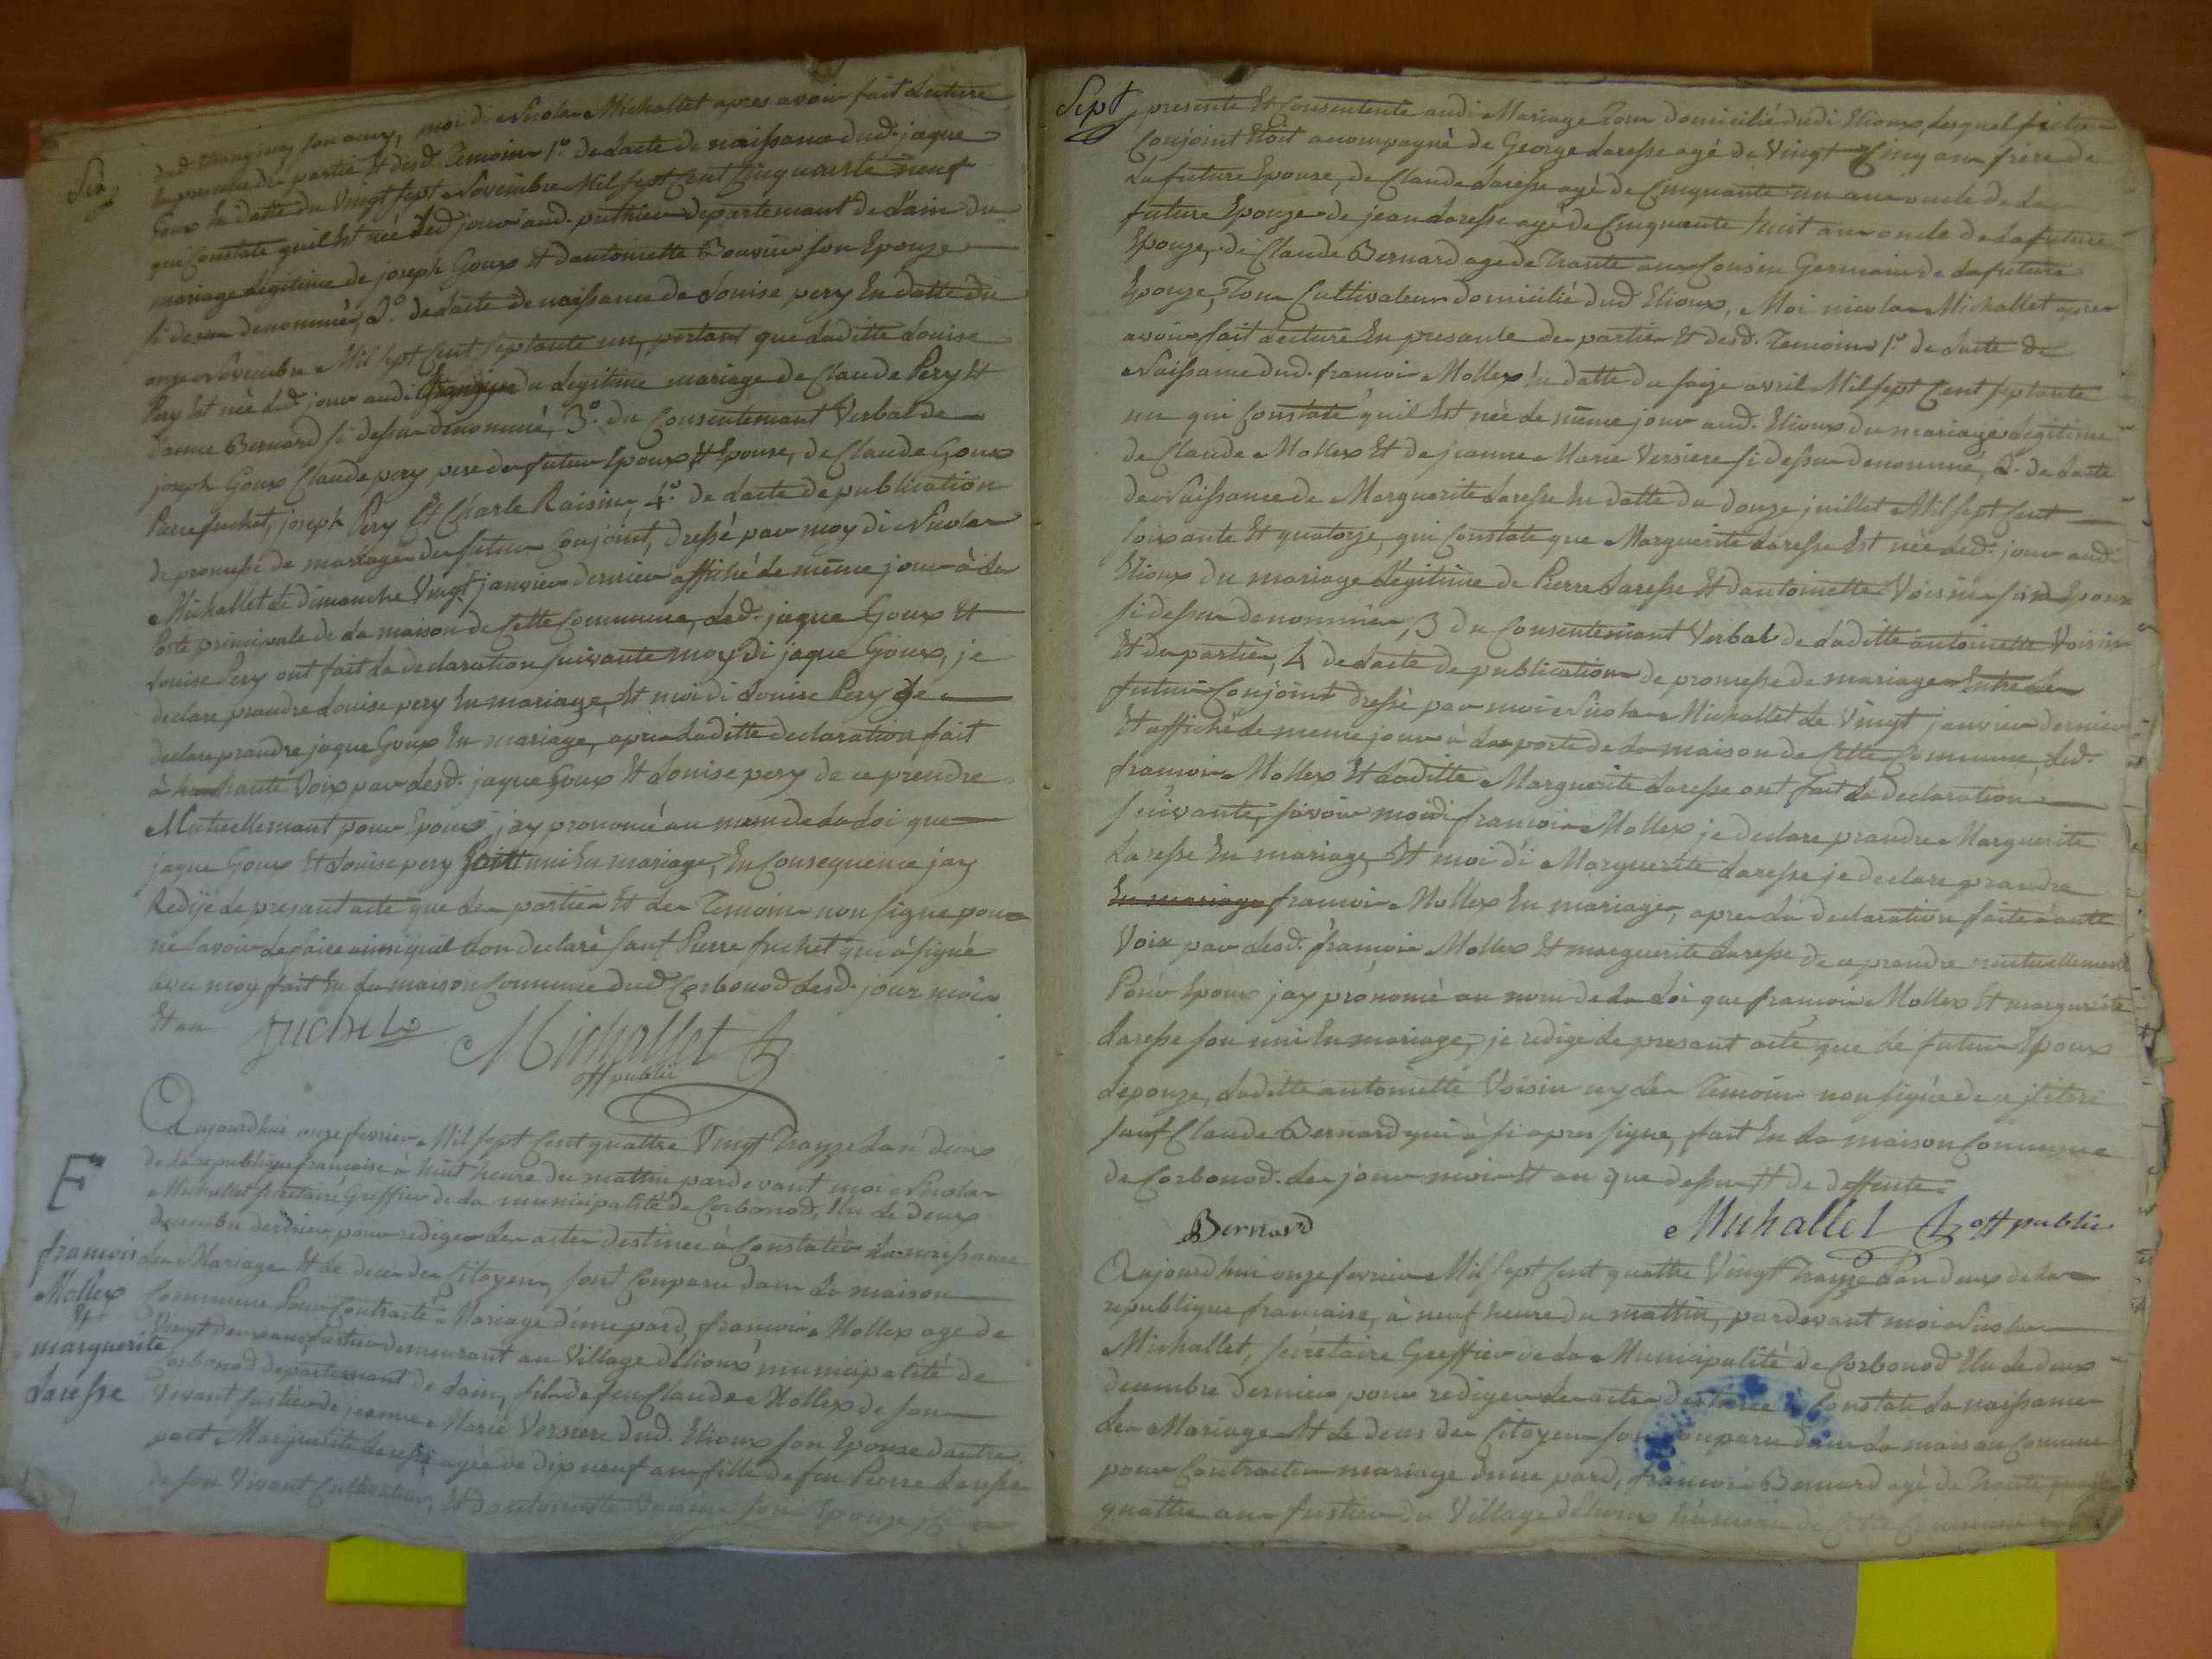 Six
dud Etrangina son amy, moi di Nicolas Michallet apres avoir fait Lecture
En presanta des partie Et desd. Temoins 1.º de Lacte de naissance dud. jaque
Goux En datte du Vingt sept Novembre Mil sept Cent Cinquante neuf
qui Constate quil Est née led. jour aud. puthieu departemant de Lain du
mariage Legitime de joseph Goux Et dantoinette Bouvier son Epouze
si desus denommés, 2.º de Lacte de naissance de Louise pery En datte du
onze Novembre Mil sept Cent septante un, portant que Laditte Louise
Pery Est née Led. jour audi du Legitime mariage de Claude Pery Et
danne Bernard si dessus denommé, 3.º du Consentemant Verbal de
joseph Goux Claude pery pere des futur Epoux Et Epouse, de Claude Goux
Pierre fuchet, joseph Pery Et Charle Raisin, 4.º de Lacte de publication
de promesse de mariage des futur Conjoint, dressé par moy di Nicolas
Michallet Le dimanche Vingt janvier dernier affiché Le même jour à La
Porte principale de La maison de Cette Commune, Led. jaque Goux Et
Louise Pery ont fait La declaration suivante moy di jaque Goux, je
declare prandre Louise pery En mariage, Et moi di Louise Pery je
declare prandre jaque Goux En mariage, apres Laditte declaration fait
à haute Voix par Lesd. jaque Goux Et Louise pery de ce prendre
Mutuellemant pour Epoux, jay prononcé au nom de La Loi que
jaque Goux Et Louise pery uni En mariage, En Consequence jay
Redije Le presant acte que Les parties Et Les Temoins non signe pour
ne savoir Le faire ainsi quil Lon declaré sauf Pierre fuchet qui à signé
avec moy fait En La maison Commune dud Corbonod Lesd. jour mois
Et an
fuchet
Michallet
off public
Aujourdhui onze fevrier Mil sept Cent quattre Vingt Trayze Lan deux
de La republique francoise à huit heure du mattin pardevant moi Nicolas
Michallet secretaire Greffier de La municipalité de Corbonod, Elu Le deux
decembre dernier, pour rediger Les actes destinee à Constater La naissance
Les Mariage Et Le deces des Citoyens, sont Conparu dans La maison
Commune Pour Contracter Mariage dune pard, francois Mollex age de
Vingt deux ans fustier demeurant au Village délioux municipalité de
Corbonod departemant de Lain, fils de feu Claude Mollex de son
Vivant fustier de jeanne Marie Versiere dud. Elioux son Epouse dautre
part Marguerite Laresse agée de dix neuf ans fille de feu Pierre Laresse
de son Vivant Cultivateur, Et dantoinette Voisin son Epouze
F
francois
Mollex
Et
marguerite
Laresse
Sept
presente Et Consentente audi Mariage Tous domicilié dudi Elioux, Lesquel futur
Conjoint Etoit accompagné de George Laresse agé de Vingt Cinq ans frere de
La future Epouse, de Claude Laresse agé de Cinquante un ans oncle de La
future Epouze de jean Laresse agé de Cinquante huit ans oncle de La future
Epouze, de Claude Bernard age de Trante ans Cousin Germain de La future
Epouze, Tous Cultivateur domicilié dud Elioux, Moi nicolas Michallet apres
avoir fait Lecture En presante des parties Et desd. Temoins 1.º de Lacte de
Naissance dud. francois Mollex En datte du saize avril Mil sept Cent septante
un qui Constate quil Est née Le même jour aud. Elioux du mariage Legitime
de Claude Mollex Et de jeanne Marie Versiere si dessus denommé, 2. de Lacte
de Naissance de Marguerite Laresse En datte du douze juillet Mil sept Cent
soixante Et quatorze, qui Constate que Marguerite Laresse Est née Led. jour audi
Elioux du mariage Légitime de Pierre Laresse Et dantoinette Voisin son Epouse
si dessus denommés, 3 du Consentemant Verbal de Laditte antoinette Voisin
Et des parties, 4 de Lacte de publication de promesse de mariage Entre Les
futur Conjoint dressé par moi Nicolas Michallet Le Vingt janvier dernier
Et affiché Le meme jour à La porte de La maison de Cette Commune, Led.
francois Mollex Et Laditte Marguerite Laresse ont fait La declaration
suivante, savoir moi di francois Mollex je declare prandre Marguerite
Laresse En mariage, Et moi di Marguerite Laresse je declare prandre
En mariage francois Mollex En mariage, apres La declaration faite à aute
Voix par Lesd. francois Mollex Et marguerite Laresse de ce prendre mutuellemant
Pour Epoux jay prononcé au nom de La Loi que francois Mollex Et marguerite
Laresse son uni En mariage, je redige Le presant acte que Le futur Epoux
Lepouze, Laditte antoinette Voisin ny Les Temoins non signée de ce
sauf Claude Bernard qui à si apres signe, fait En La maison Commune
de Corbonod. Les jour mois Et an que dessus
Bernard
Michallet off public
Aujourdhui onze fevrier Mil sept Cent quattre Vingt Trayze Lan deux de La
republique francaise, à neuf heure du mattin, pardevant moi Nicolas
Michallet, secrétaire Greffier de La Municipalité de Corbonod Elu Le deux
decembre dernier pour rediger Les actes destinee à Constate La naissance
Les Mariage Et Le deces des Citoyens son Conparu dans La maison Comune
pour Contracter mariage dune pard, francois Bernard agé de Trante
quattre ans fustier du Village délioux hameau de Cette Commune